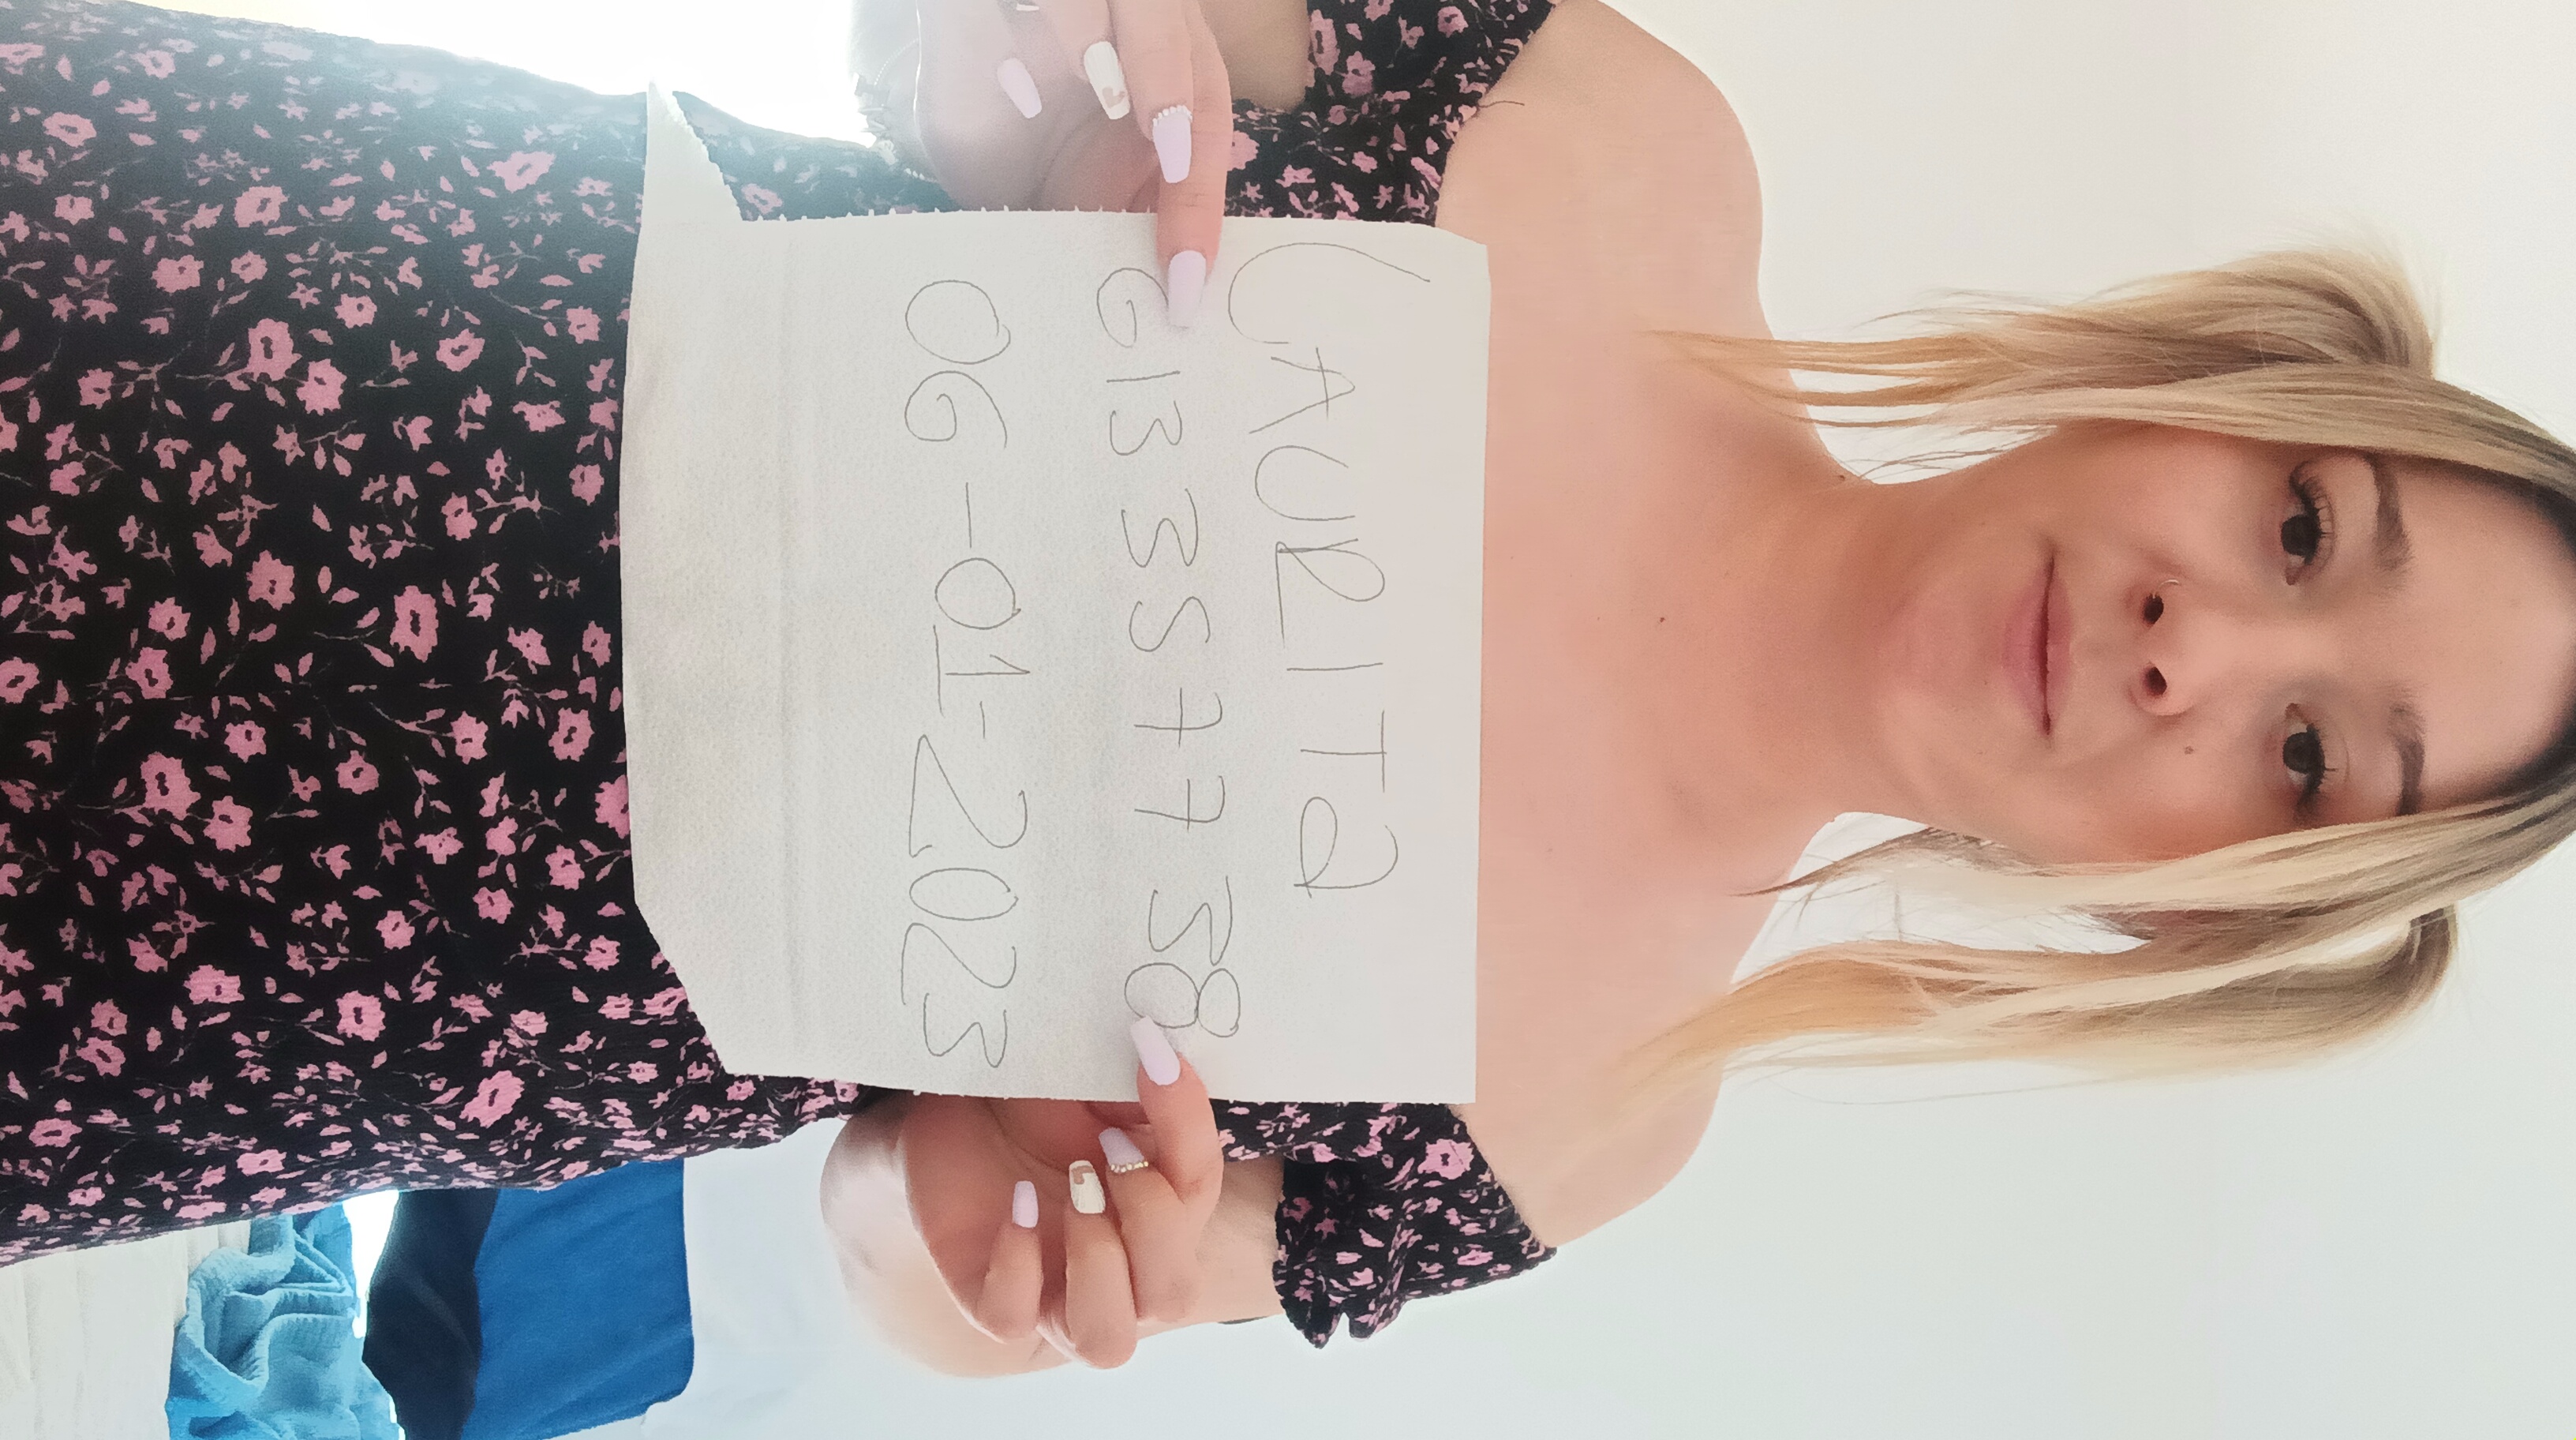 LAURITA
613 35 77 38
06-01-2023